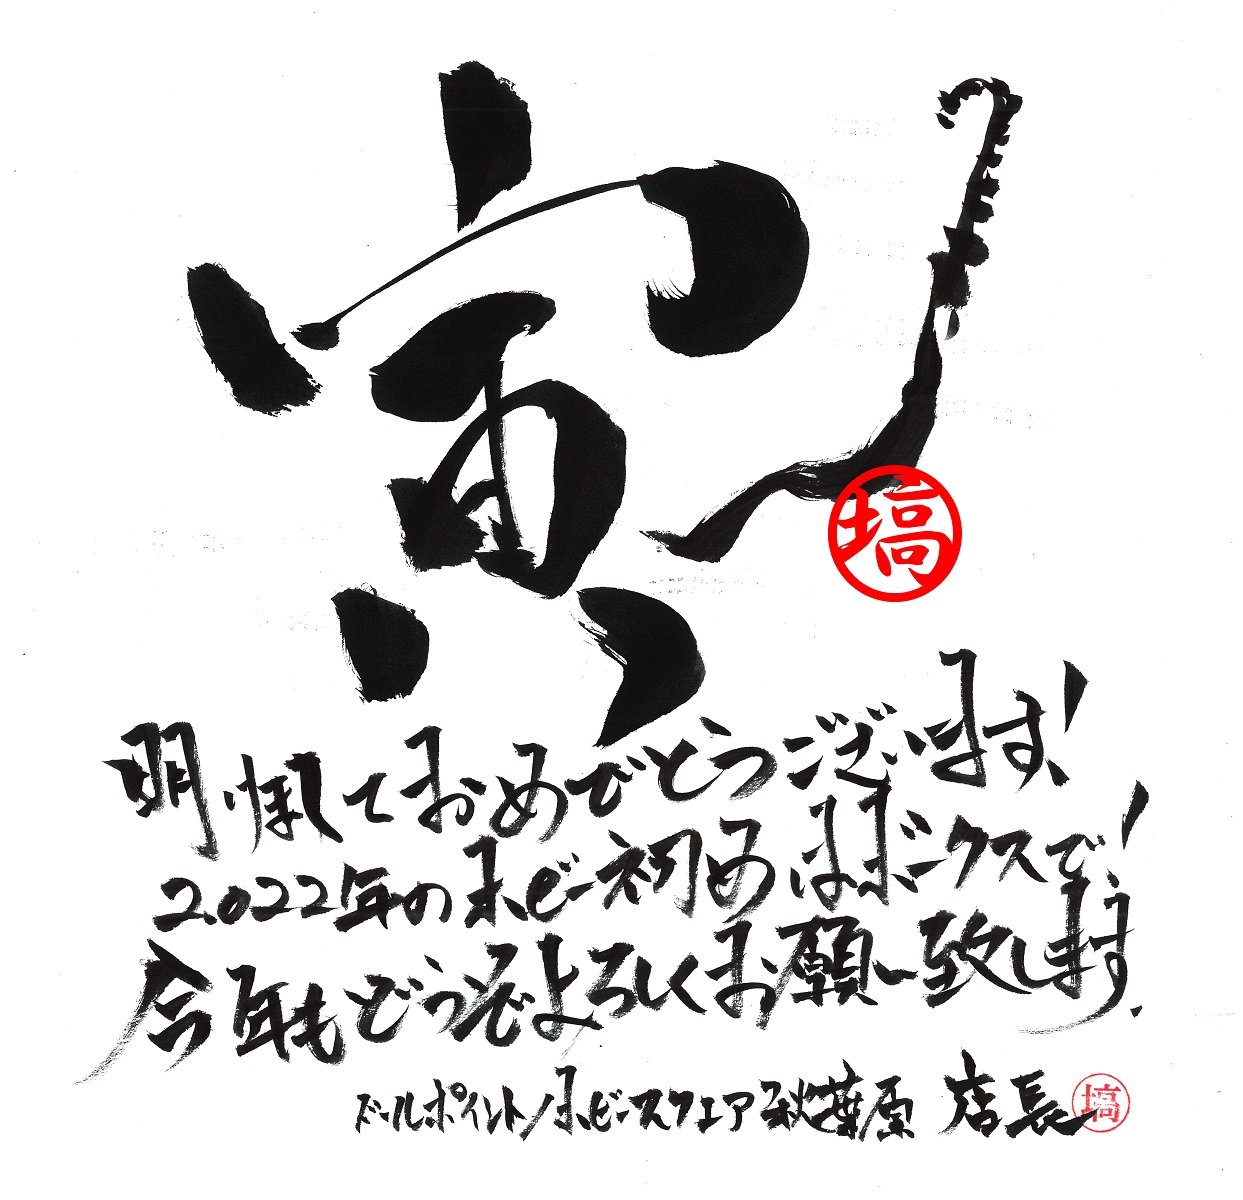 寅
塙
明けましておめでとうございます!
2022年のホビー初めはボークスで!
今年もどうぞよろしくお願い致します!
ドールポイント/ホビースクエア秋葉原 店長 塙